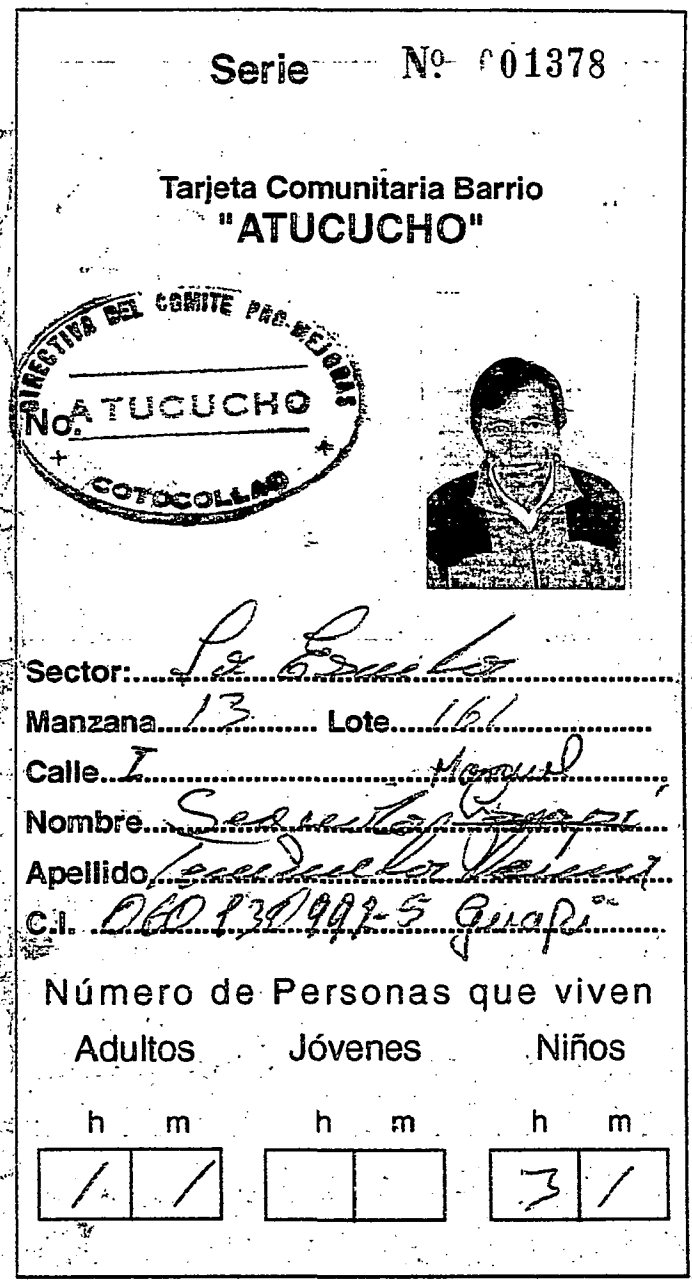 Serie Nº 001378
Tarjeta Comunitaria Barrio
"ATUCUCHO"
DIRECTIVA DEL COMITE PRO-MEJORAS
No. ATUCUCHO
COTOCOLLAO
Sector: La
Manzana 13 Lote 161
Calle I Manuel
Nombre Segundo
Apellido
C.I.
Número de Personas que viven
Adultos Jóvenes Niños
h m h m h m
1 1 3 1